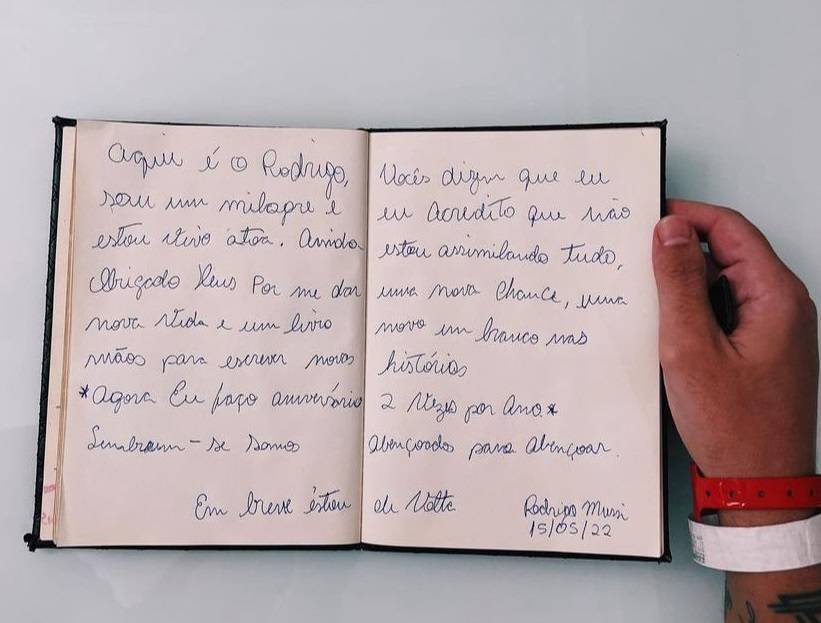 Aqui é o Rodrigo, Vocês dizem que eu
sou um milagre e eu Acredito que não
estou vivo atoa. Ainda estou assimilando tudo,
Obrigado Deus Por me dar uma nova chance, uma
nova vida e um livro novo em branco nas
mãos para escrever novas histórias
*Agora Eu faço aniversário 2 Vezes por Ano*
Lembrem-se somos abençoados para abençoar.
Em breve estou de Volta Rodrigo Mussi
15/05/22